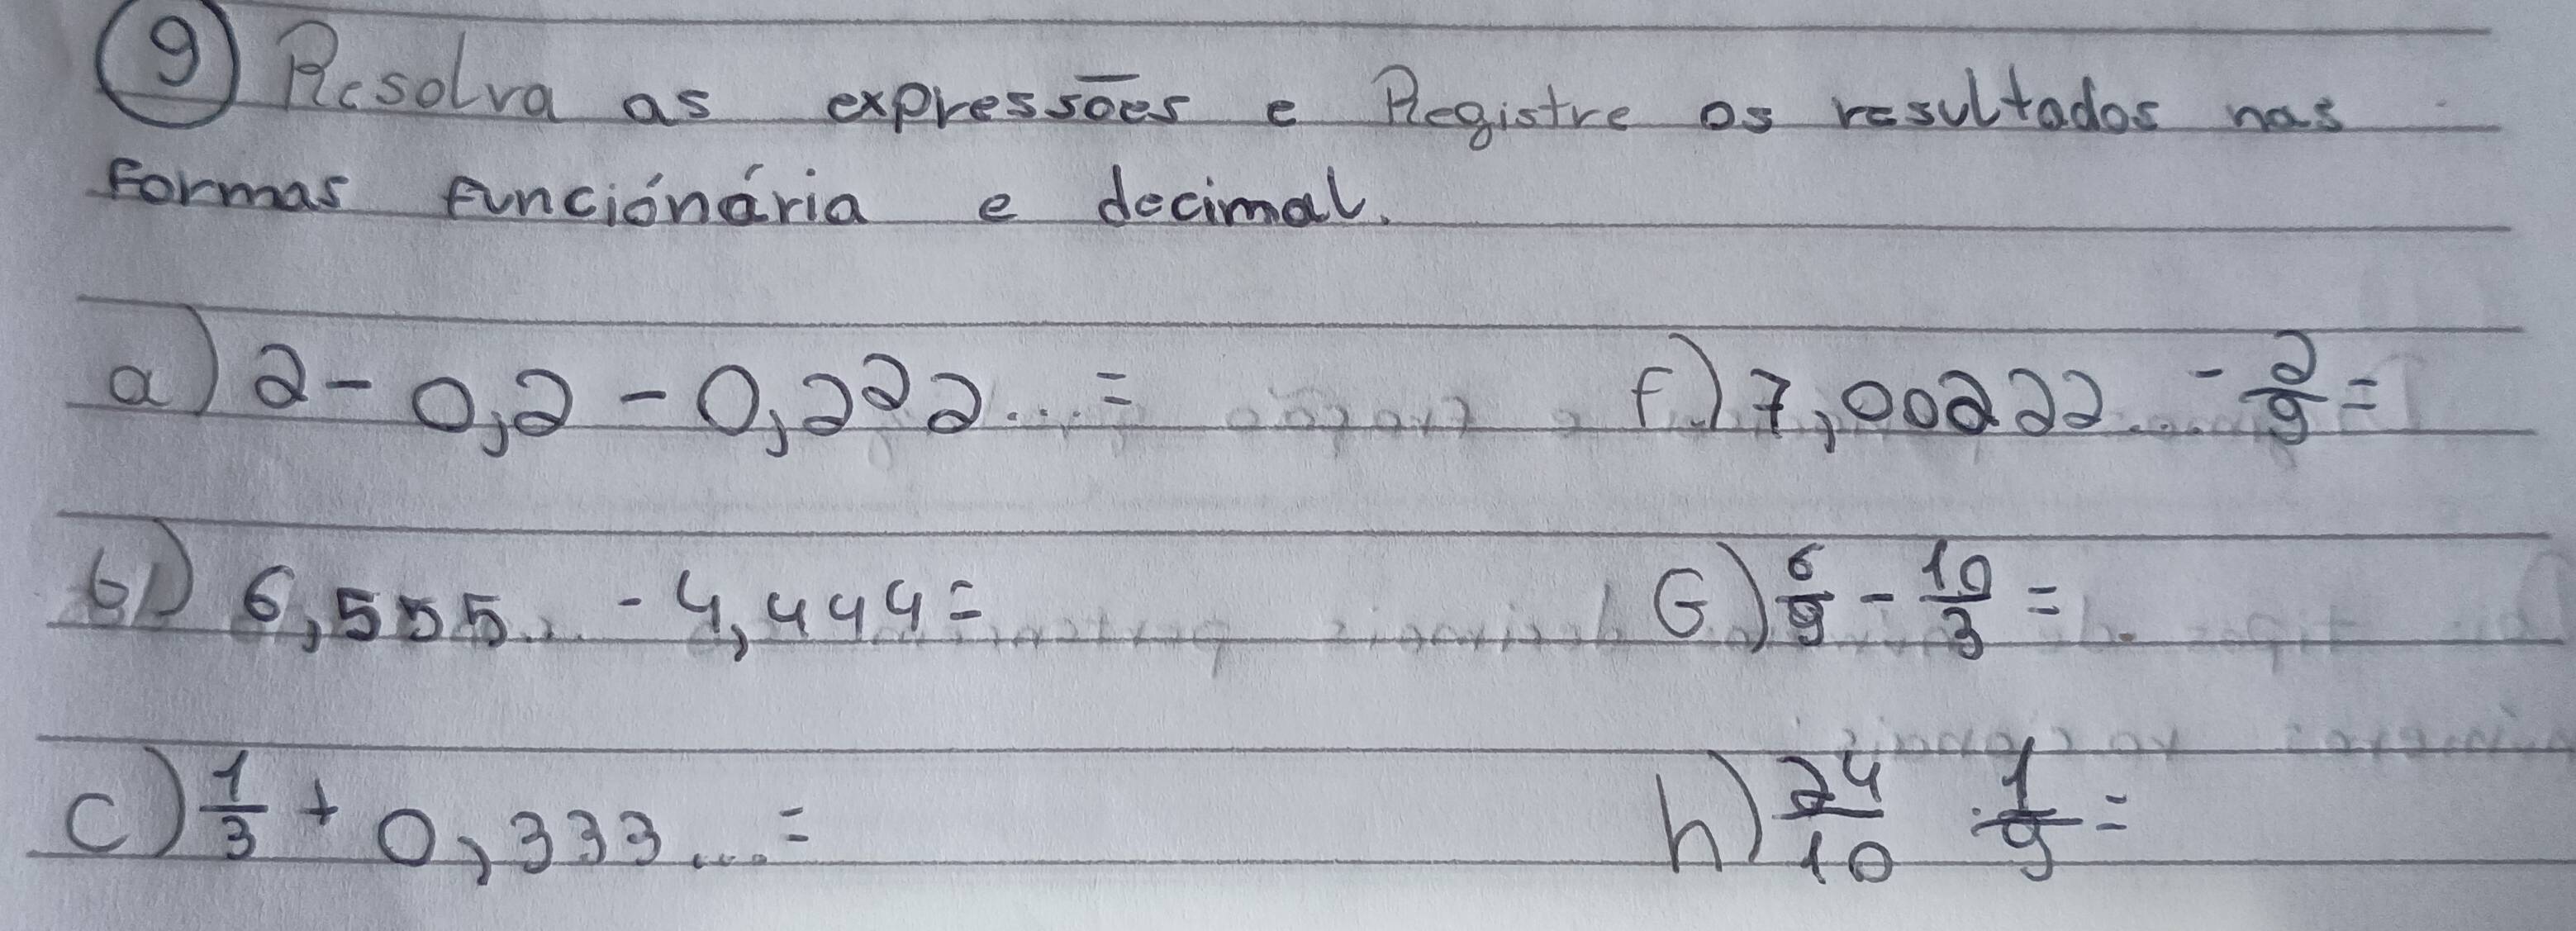 9 Resolva as expressões e Registre os resultados nas
Formas funciónária e decimal.
a) 2 - 0,2 - 0,222... =
f) 7,00222... - 2/9 =
b) 6,555... - 4,444 =
G) 6/9 - 10/3 =
c) 1/3 + 0,333... =
h) 24/10 . 1/9 =